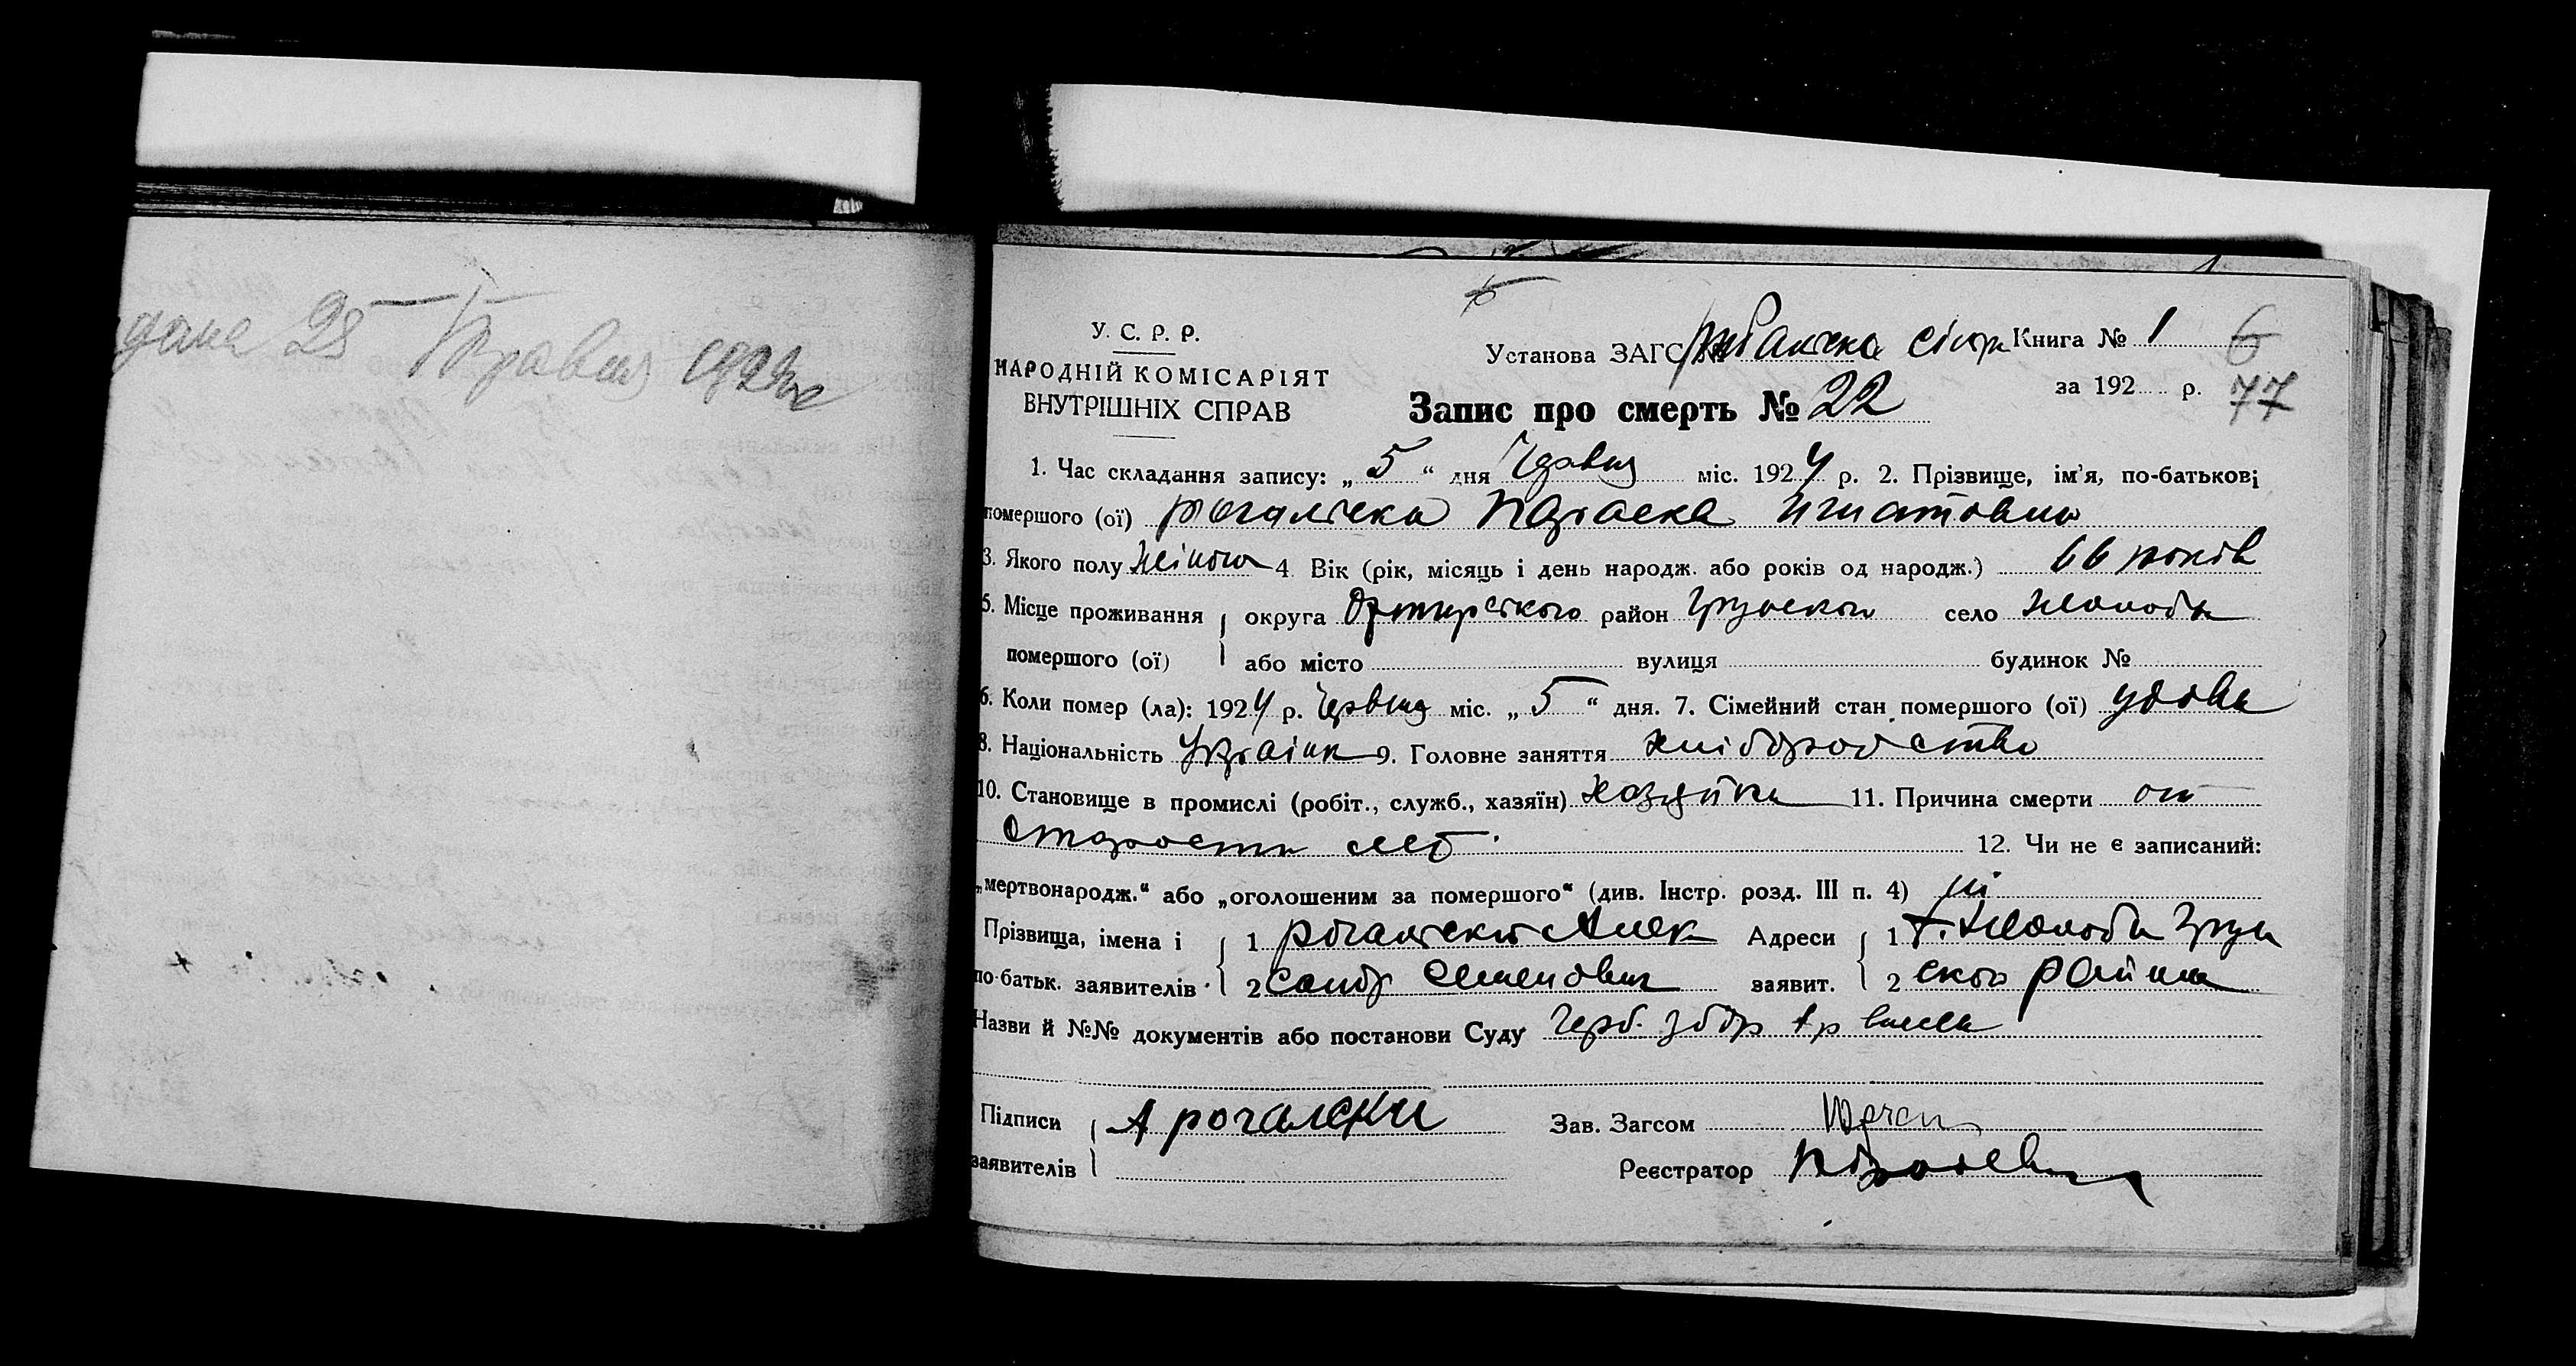 25 Травня 192
У. С. Р. Р.
НАРОДНІЙ КОМІСАРІЯТ
ВНУТРІШНІХ СПРАВ
Установа ЗАГС Книга № 1 6
за 192 р. 77
Запис про смерть № 22
1. Час складання запису: „ 5 “ дня Червня міс. 1924 р. 2. Прізвище, ім'я, по-батькові
помершого (ої) Рогальська Параска Игнатовна
3. Якого полу Жіного 4 Вік (рік, місяць і день народж. або років од народж.) 66 років
5. Місце проживання округа Охтирського район Грунського село
помершого (ої) або місто вулиця будинок №
6. Коли помер (ла): 1924 р. Червня міс. „ 5 “ дня. 7. Сімейний стан помершого (ої) удова
8. Національність Украінк 9. Головне заняття хліборобство
10. Становище в промислі (робіт., служб., хазяїн) хазяйка 11. Причина смерти от
старости лет. 12. Чи не є записаний:
„мертвонародж.“ або „оголошеним за помершого“ (див. Інстр. розд. III п. 4) ні
Прізвища, імена і 1 Рогальский Алек Адреси 1 Грун
по-батьк. заявителів 2 сандр Семенович заявит. 2 ского района
Назви й №№ документів або постанови Суду Герб. збор
Підписи А Рогалски Зав. Загсом
заявителів Реєстратор